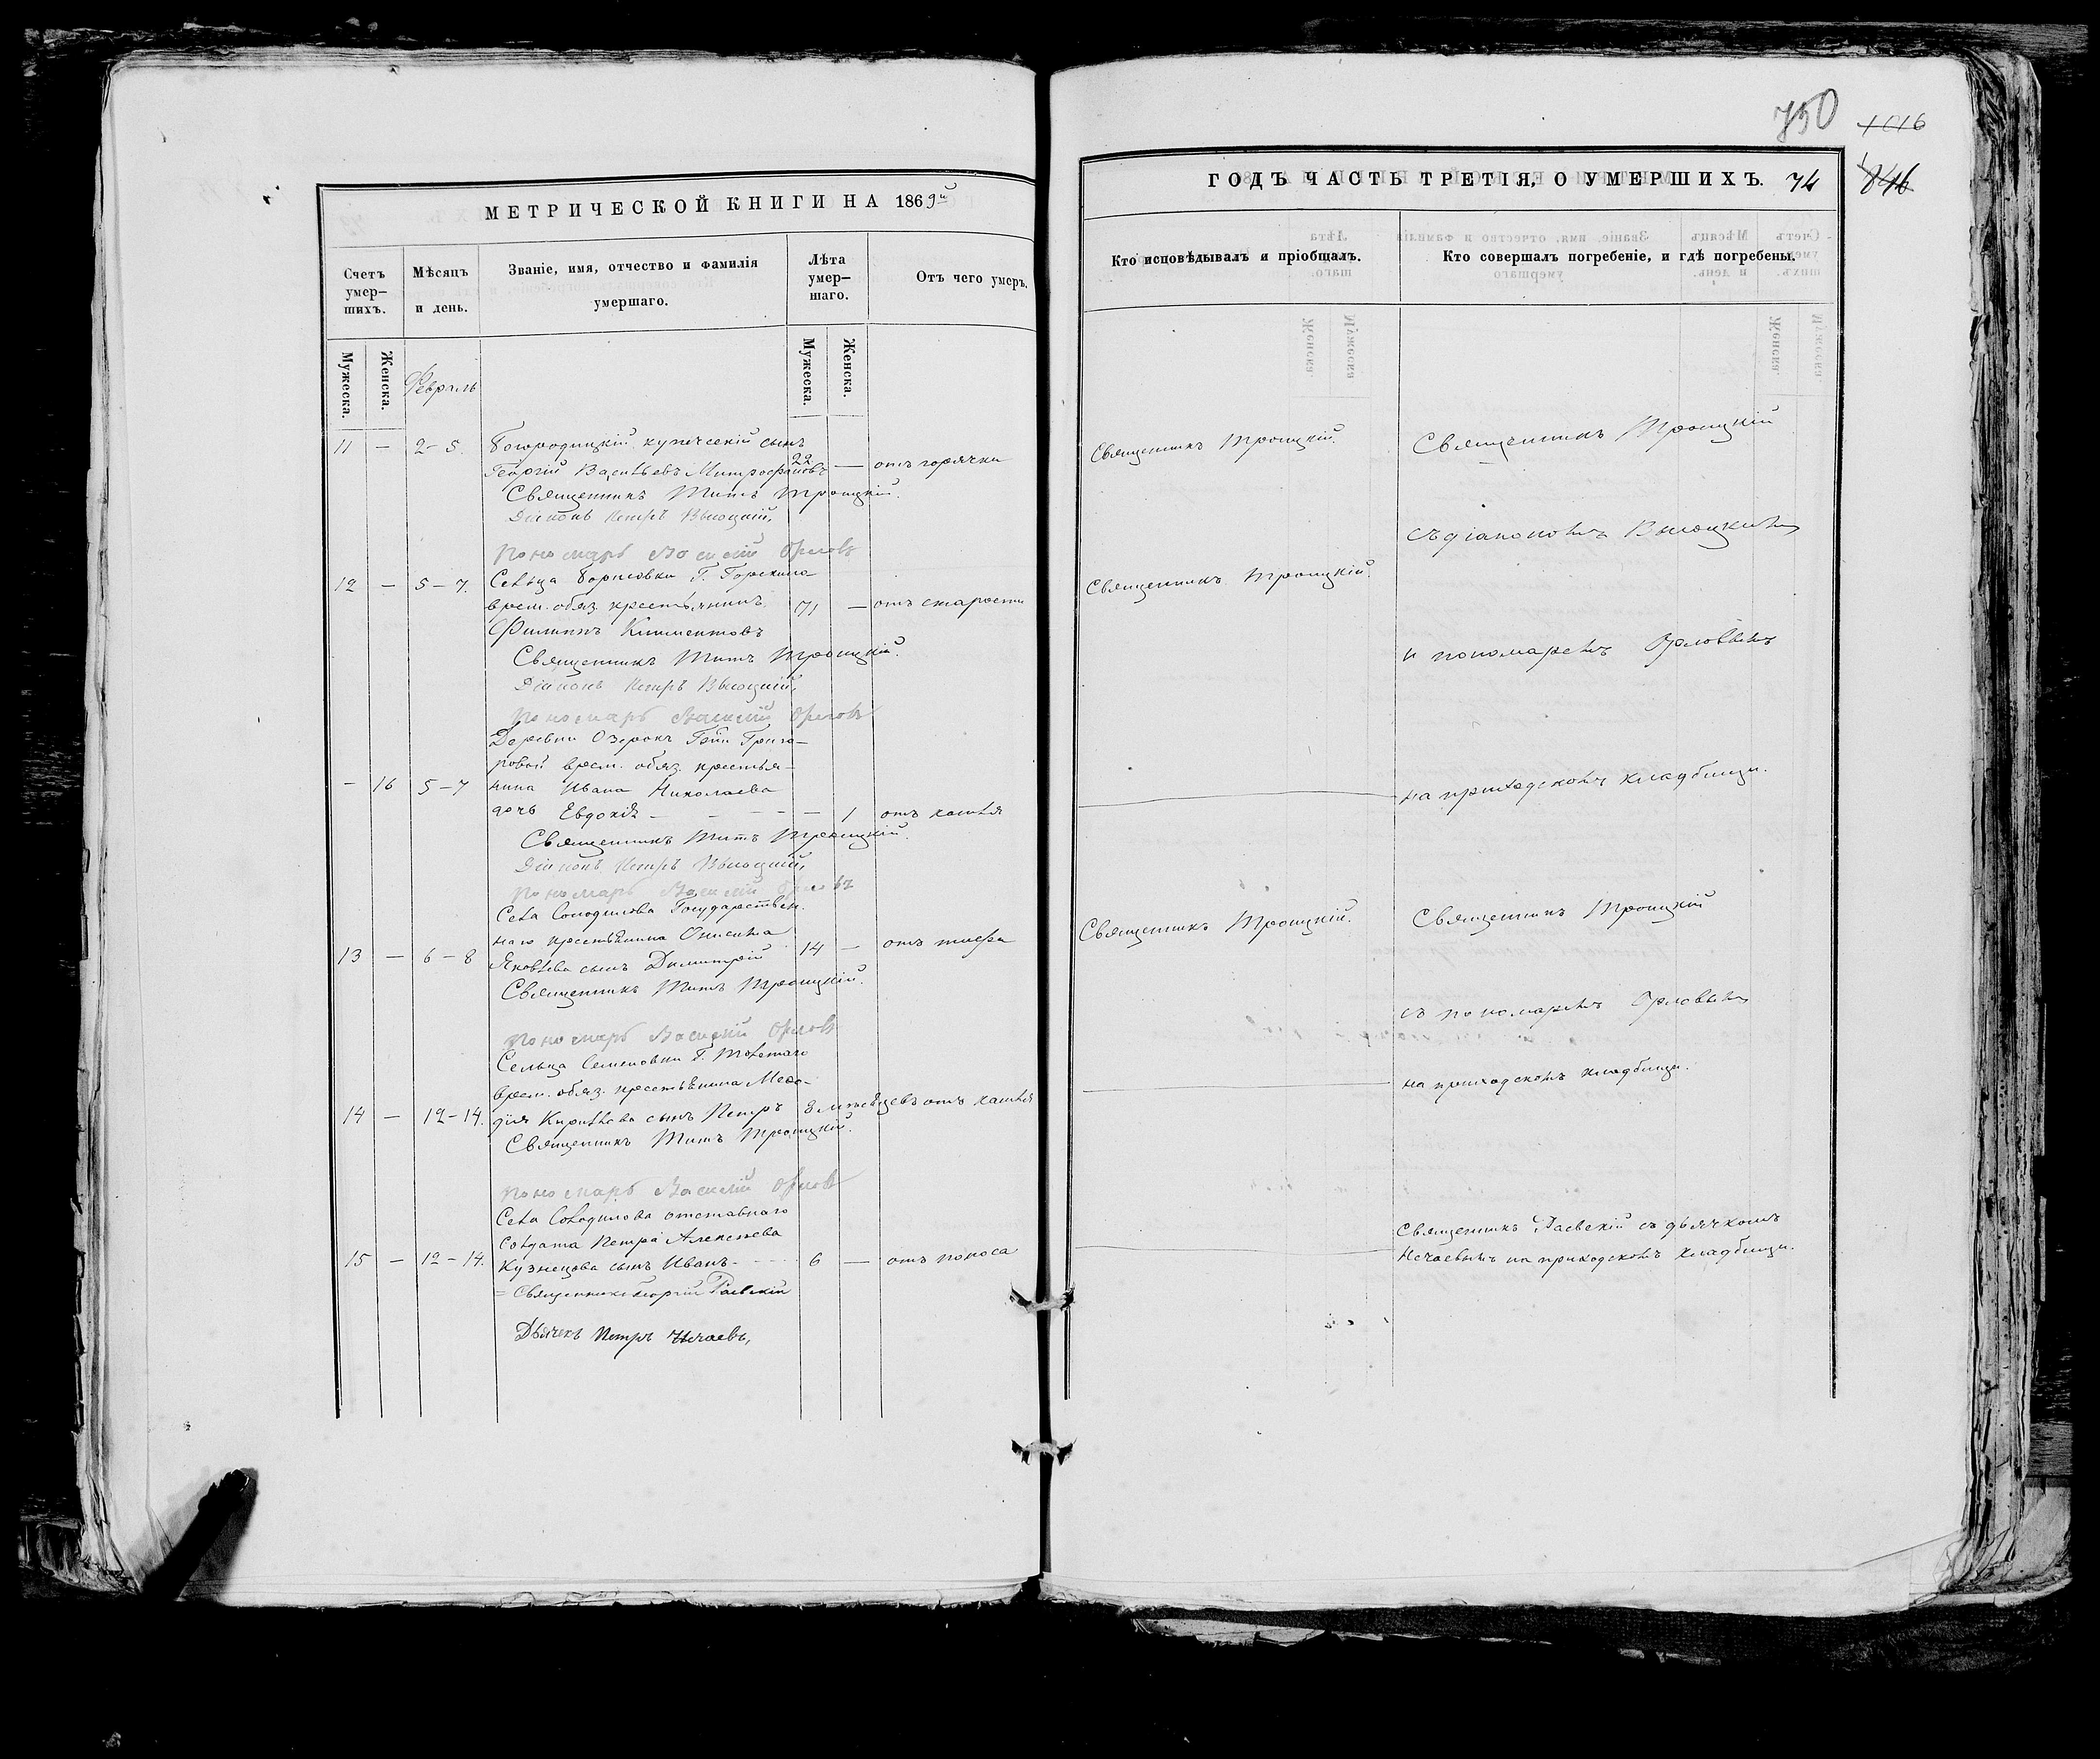 750
1016
846
МЕТРИЧЕСКОЙ КНИГИ НА 1869й
Счетъ умер-
шихъ.
Мѣсяцъ
и день.
Званіе, имя, отчество и фамилія
умершаго.
Лѣта
умер-
шаго.
Отъ чего умеръ.
Мужеска.
Женска.
Февраль
Мужеска.
Женска.
11 — 2-5. Богородицкій купеческій сынъ
Георгій Васильевъ Митрофановъ 22 — отъ горячки
Священникъ Титъ Троицкій.
Діаконъ Петръ Высоцкій,
Пономарь Василій Орловъ
12 — 5-7. Сельца Борисовки Г. Горскина
врем. обяз. крестьянинъ 71 — отъ старости
Филиппъ Климентовъ
Священникъ Титъ Троицкій.
Діаконъ Петръ Высоцкій,
Пономарь Василій Орловъ
Деревни Озерокъ Гжи Григо-
ровой врем. обяз. крестья-
— 16 5-7 нина Ивана Николаева
дочь Евдокія — — 1 отъ кашля
Священникъ Титъ Троицкій.
Діаконъ Петръ Высоцкій,
Пономарь Василій Орловъ
Села Солодилова Государствен.
наго крестьянина Онисима
13 — 6-8 Яковлева сынъ Димитрій 14 — отъ тифа
Священникъ Титъ Троицкій.
Пономарь Василій Орловъ
Сельца Семеновки Г.
врем. обяз. крестьянина Меѳо-
14 — 12-14. дія Кирилова сынъ Петръ 8 мѣсяцевъ отъ кашля
Священникъ Титъ Троицкій.
Пономарь Василій Орловъ
Села Солодилова отставнаго
Солдата Петра Алексѣева
15 — 12-14. Кузнецова сынъ Иванъ 6 — отъ поноса
Священникъ Георгій Раевскій
Дьячекъ Петръ Нечаевъ,
ГОДЪ ЧАСТЬ ТРЕТІЯ, О УМЕРШИХЪ. 74
Кто исповѣдывалъ и пріобщалъ.
Кто совершалъ погребеніе, и гдѣ погребены.
Священникъ Троицкій.
Священникъ Троицкій
съ діакономъ Высоцкимъ
Священникъ Троицкій.
и пономаремъ Орловымъ
на приходскомъ кладбищи.
Священникъ Троицкій.
Священникъ Троицкій
съ пономаремъ Орловымъ
на приходскомъ кладбищи.
Священникъ Раевскій съ дьячкомъ
Нечаевымъ на приходскомъ кладбищи.